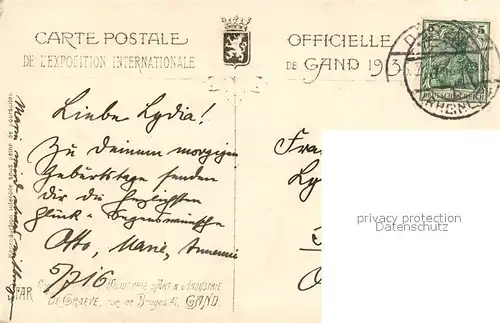 CARTE POSTALE
OFFICIELLE
DE L'EXPOSITION INTERNATIONALE
DE GAND 1913
5
DEUTSCHES REICH
(RHEINL
Liebe Lydia!
Zu Deinem morgigen
Geburtstage senden
dir die herzlichsten
Glück- Segenswünsche
Otto, Marie, Annemie
5/7 16
Frau
Ly
privacy protection
Datenschutz
reproduction interdite sous peine de poursuites
STAR
HÉLIOTYPIE D'ART & D'INDUSTRIE
DE GRAEVE, rue de Bruges 41. GAND.